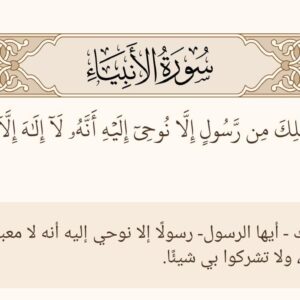 سُورَةُ الأَنبِيَاءِ
لِكَ مِن رَّسُولٍ إِلَّا نُوحِىٓ إِلَيْهِ أَنَّهُۥ لَآ إِلَـٰهَ إِلَّآ
- أيها الرسول- رسولًا إلا نوحي إليه أنه لا معب
، ولا تشركوا بي شيئًا.